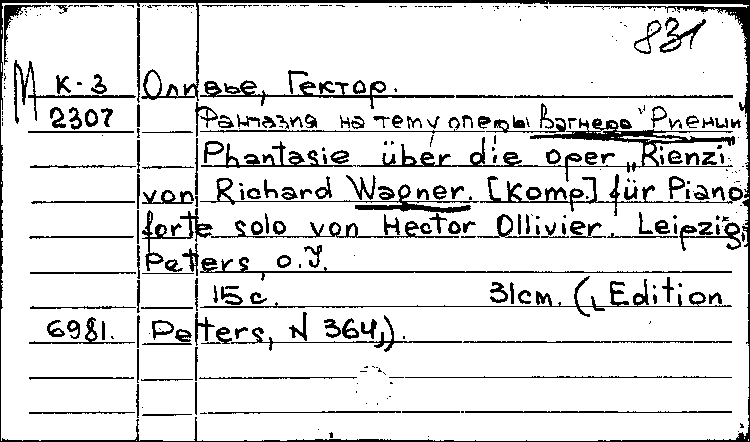 831
М К-3 Оливье, Гектор.
2307 Фантазия на тему оперы Вагнера "Риенци"
Phantasie über die oper „Rienzi"
von Richard Wagner. [Komp.] für Piano
forte solo von Hector Ollivier. Leipzig,
Peters, o.J.
15 c. 31cm. („Edition
6981. Petters, N 364„).